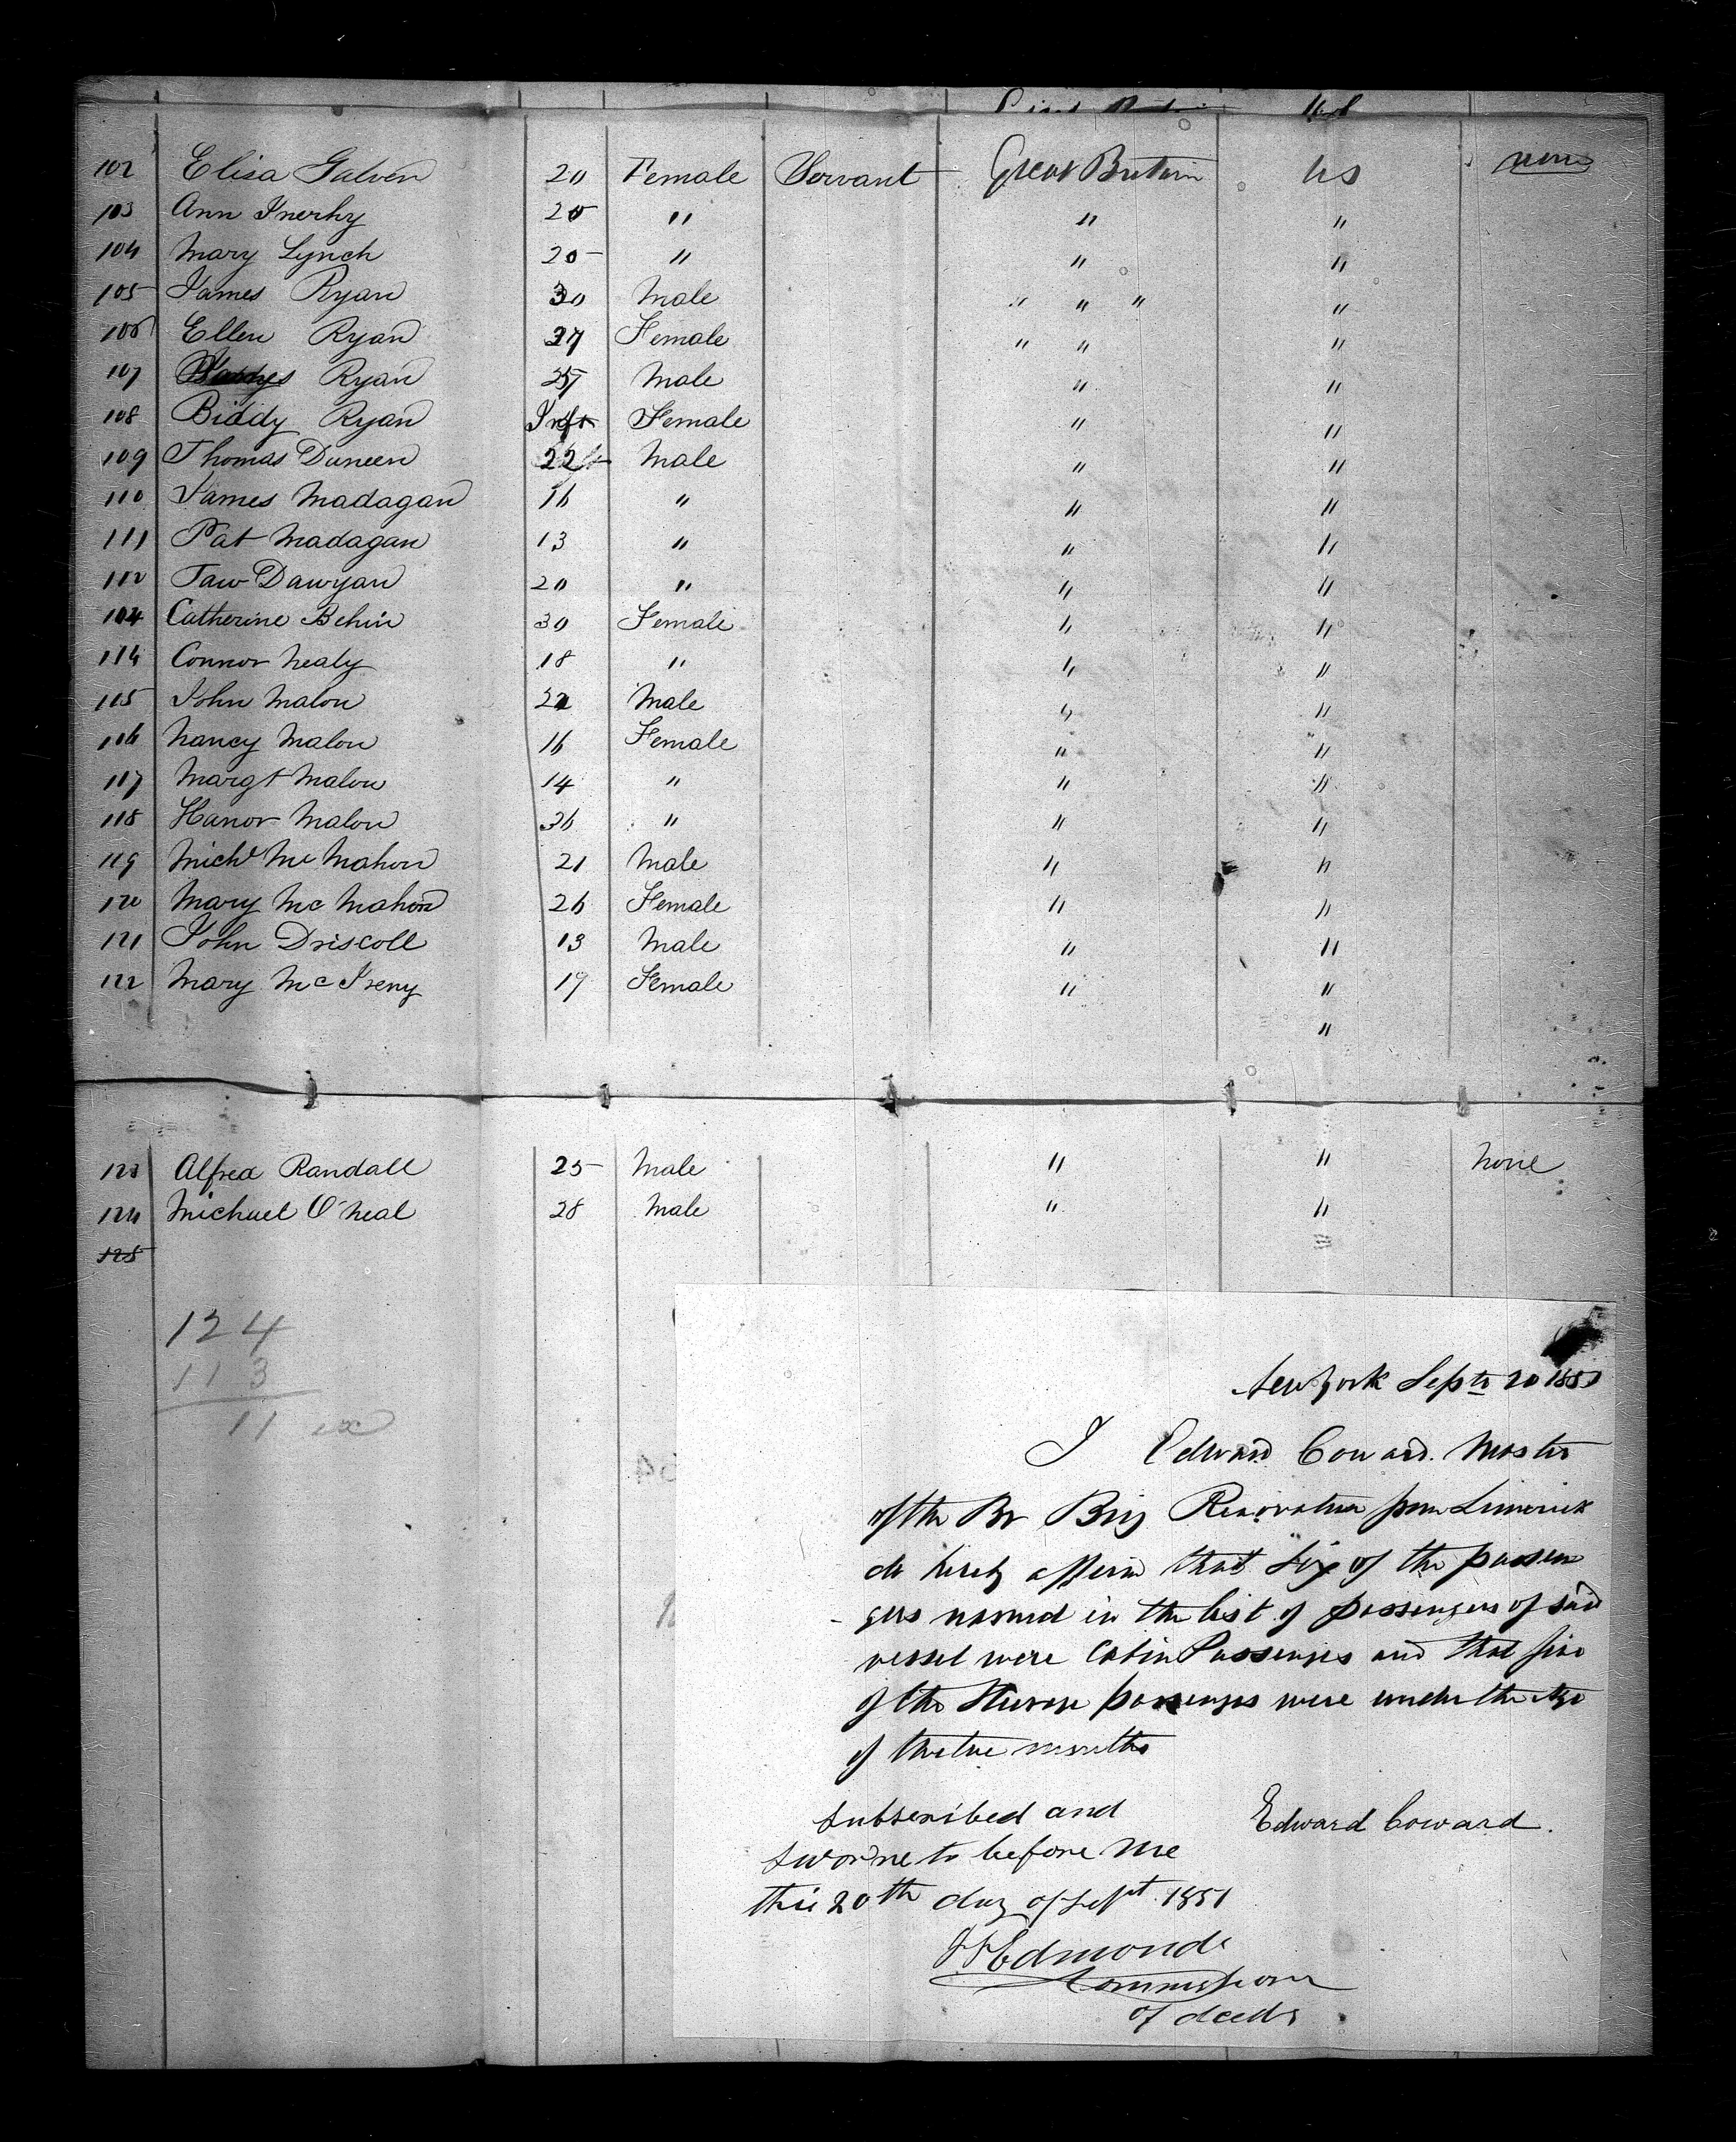 102 Elisa Galven 20 Female Servant Great Britain US none
103 Ann Inerhy 20 " " "
104 Mary Lynch 20 " " "
105 James Ryan 30 Male " " " "
106 Ellen Ryan 27 Female " " "
107 Ryan Male " "
108 Biddy Ryan Inft Female " "
109 Thomas Duneen 22 Male " "
110 James Madagan 16 " " "
111 Pat Madagan 13 " " "
112 Taw Dawyan 20 " " "
Catherine Behin 30 Female " "
114 Connor Nealy 18 " " "
115 John Malon Male " "
116 Nancy Malon 16 Female " "
117 Margt Malon 14 " " "
118 Hanor Malon 36 " " "
119 Michl McMahon 21 Male " "
120 Mary McMahon 26 Female " "
121 John Driscoll 13 Male " "
122 Mary McIreny 19 Female " "
"
123 Alfred Randall 25 Male " " None
124 Michael O'Neal 28 Male " "
125
124
113
11 ex
New York Septr 20 1851
I Edward Coward. Master
of the Br Brig Renovation from Limerick
do hereby affirm that Six of the passen
-gers named in the list of passengers of said
vessel were Cabin Passengers and that five
of the Steerage passengers were under the age
of twelve months
Edward Coward.
Subscribed and
Sworne to before me
this 20th day of Sept. 1851
Edmonds
Commissioner
of deeds